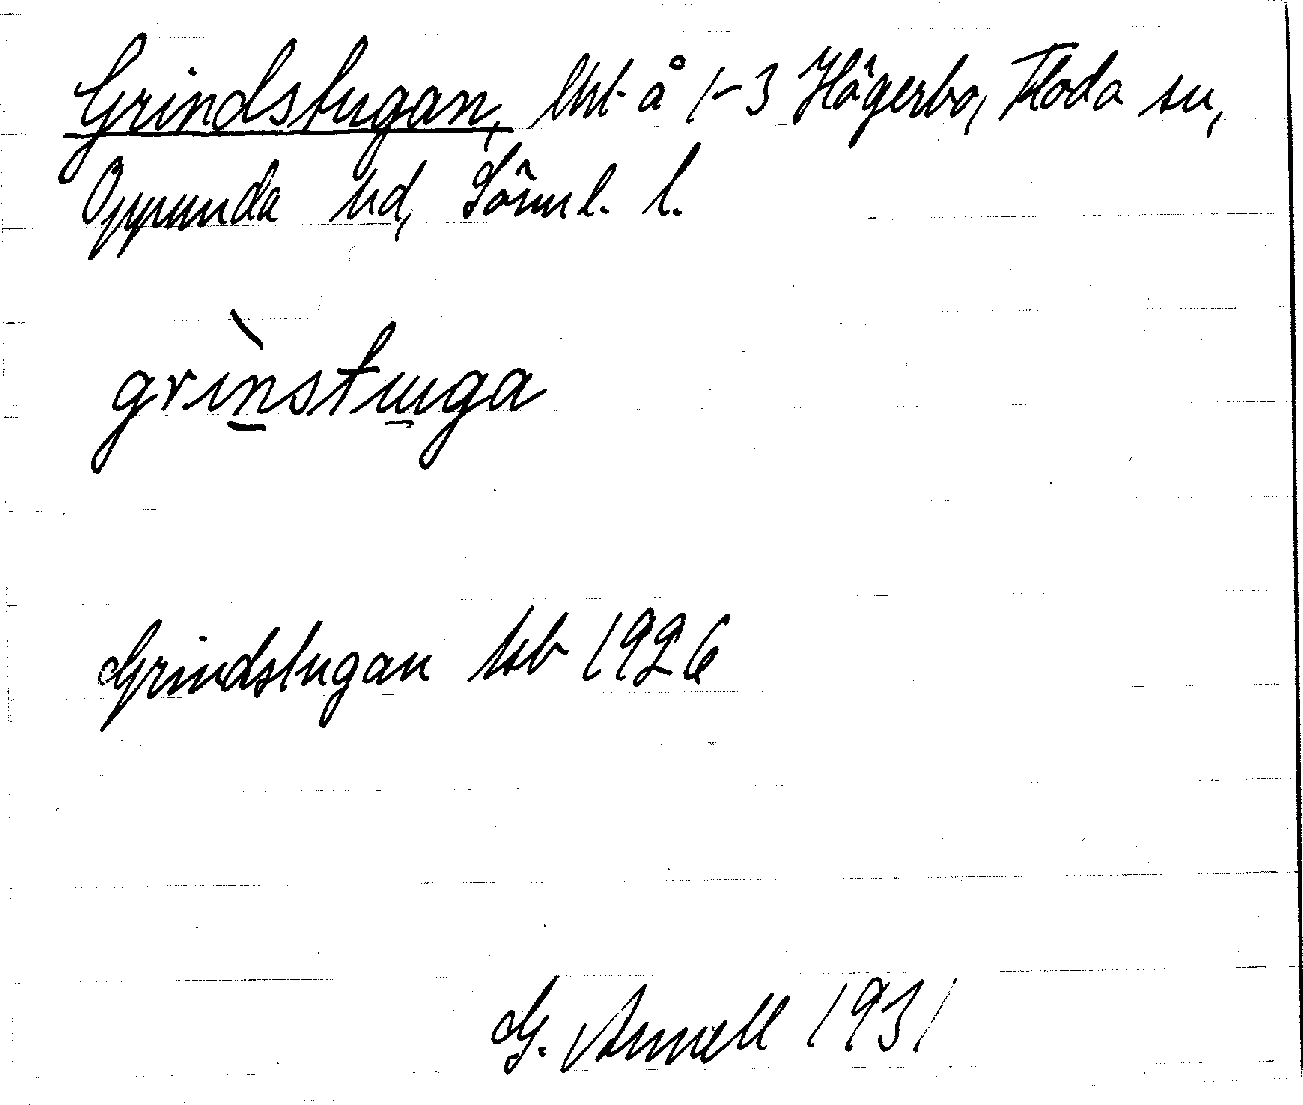 Grindstugan, lht å 1-3 Högerbo, Floda sn,
Oppunda hd, Söml. l.
grìnstuga
Grindstugan kb 1926
G. Annell 1931